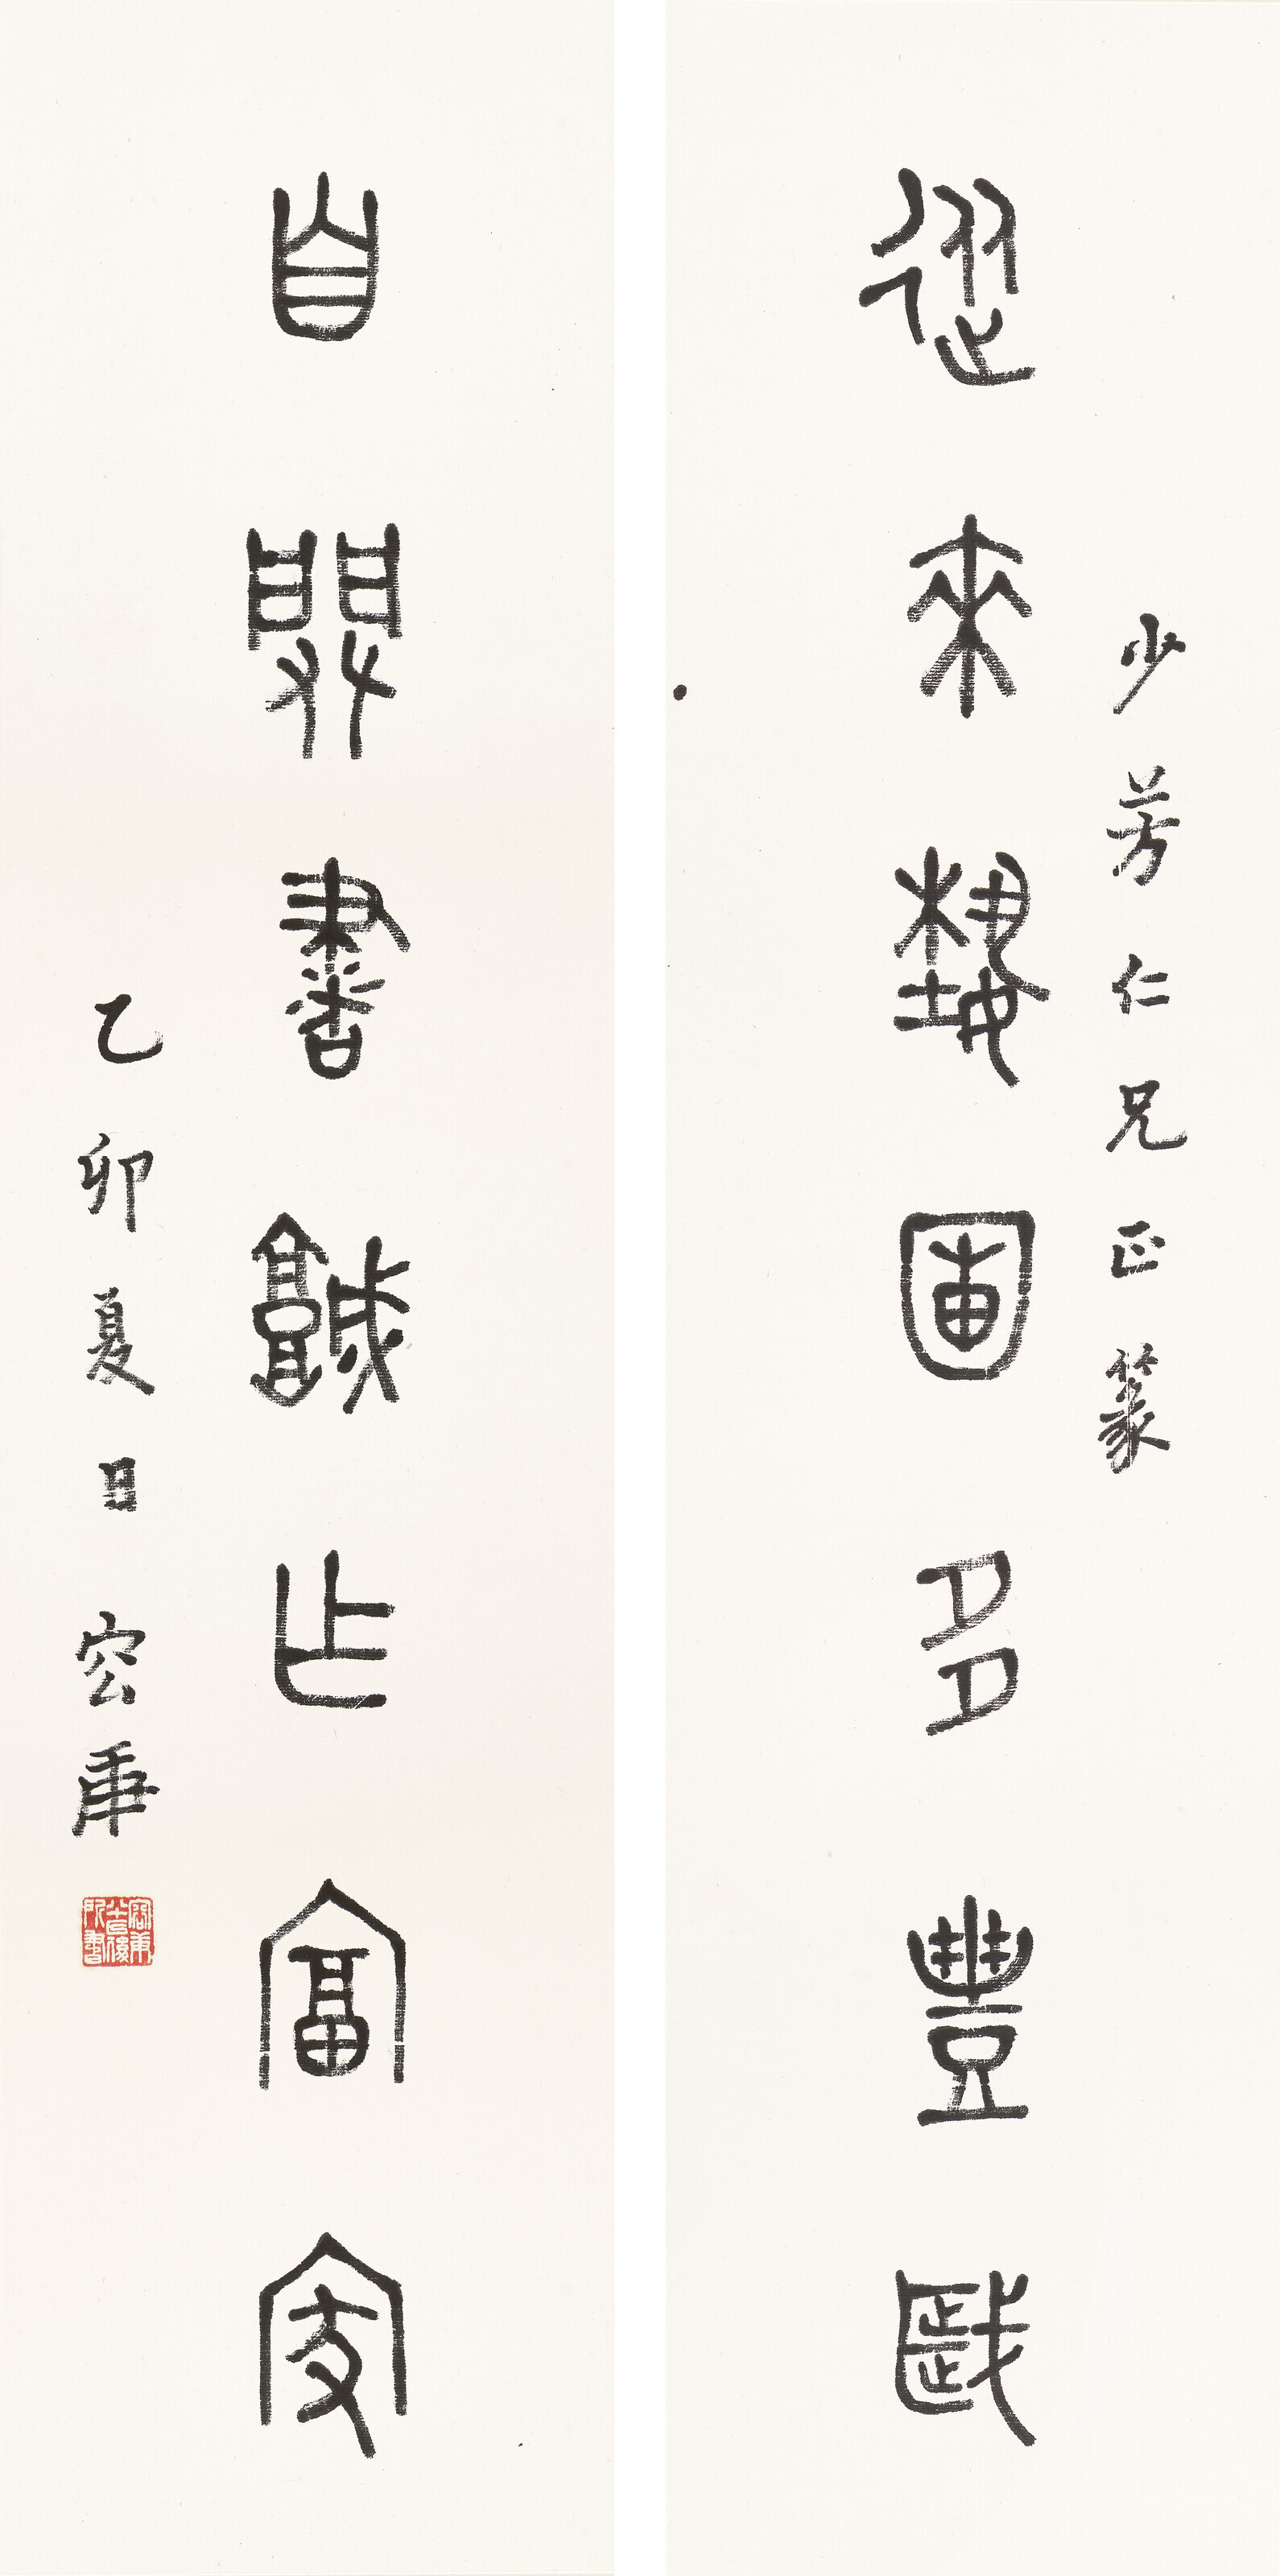 少芳仁兄正篆
從來藝圃多豐歲
自闢書城作富家
乙卯夏日容庚
容庚八十以後所書